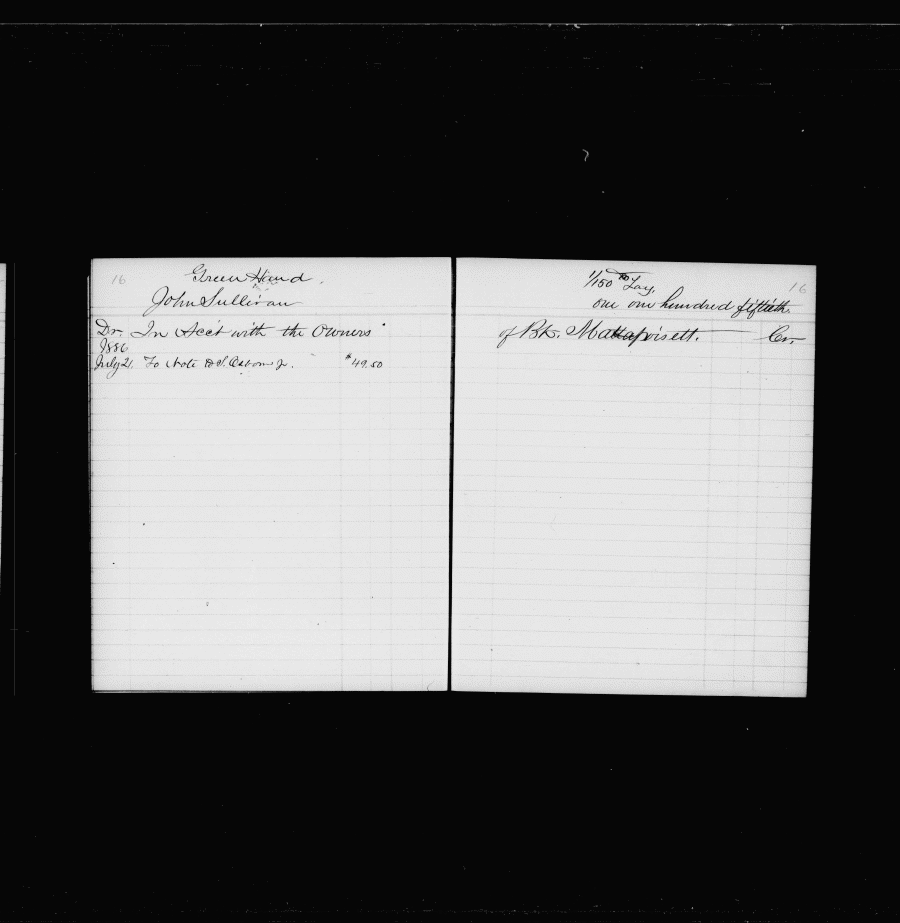 16
Green Hand
John Sullivan
Dr. In Acct with the Owners
1886
July 21 To Note S. Osborn Jr. $49.50
1/150 th Lay,
16
one one hundred fiftieth
of Bk. Mattapoisett. Cr.